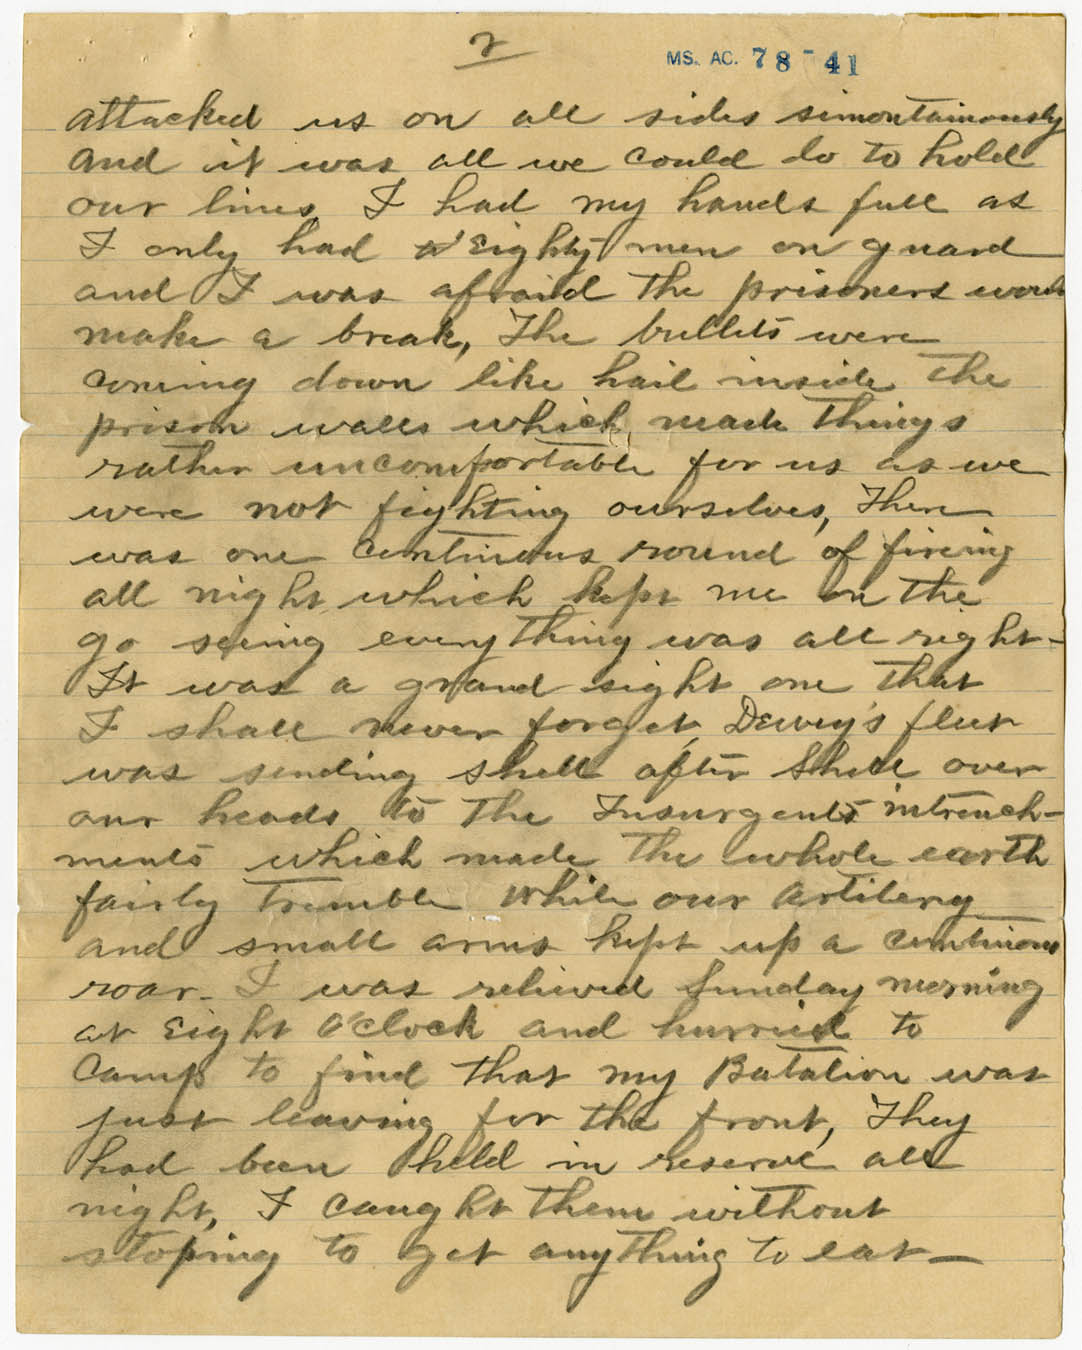 2
MS. AC. 78-41
attacked us on all sides simontainously
and it was all we could do to hold
our lines, I had my hands full as
I only had Eighty men on guard
and I was afraid the prisoners would
make a break, The bullets were
coming down like hail inside the
prison walls which made things
rather uncomfortable for us as we
were not fighting ourselves, There
was one continous round of fireing
all night which kept me on the
go seeing everything was all right-
It was a grand sight one that
I shall never forget, Dewey's fleet
was sending shell after shell over
our heads to the Insurgents intrench-
ments which made the whole earth
fairly tremble while our Artilery
and small arms kept up a continous
roar- I was relieved Sunday morning
at Eight O'Clock and hurried to
Camp to find that my Batalion was
just leaving for the front, They
had been held in reserve all
night, I caught them without
stoping to get anything to eat-